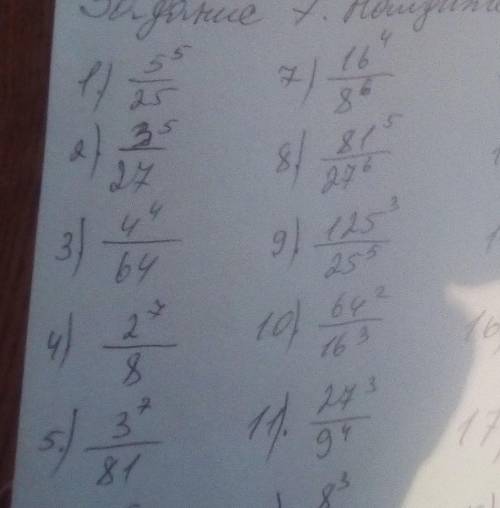 Задание 7.
1) 5^5/25
2) 3^5/27
3) 4^4/64
4) 2^7/8
5.) 3^7/81
7) 16^4/8^6
8) 81^5/27^6
9) 125^3/25^5
10) 64^2/16^3
11). 27^3/9^4
8^3
16
17)